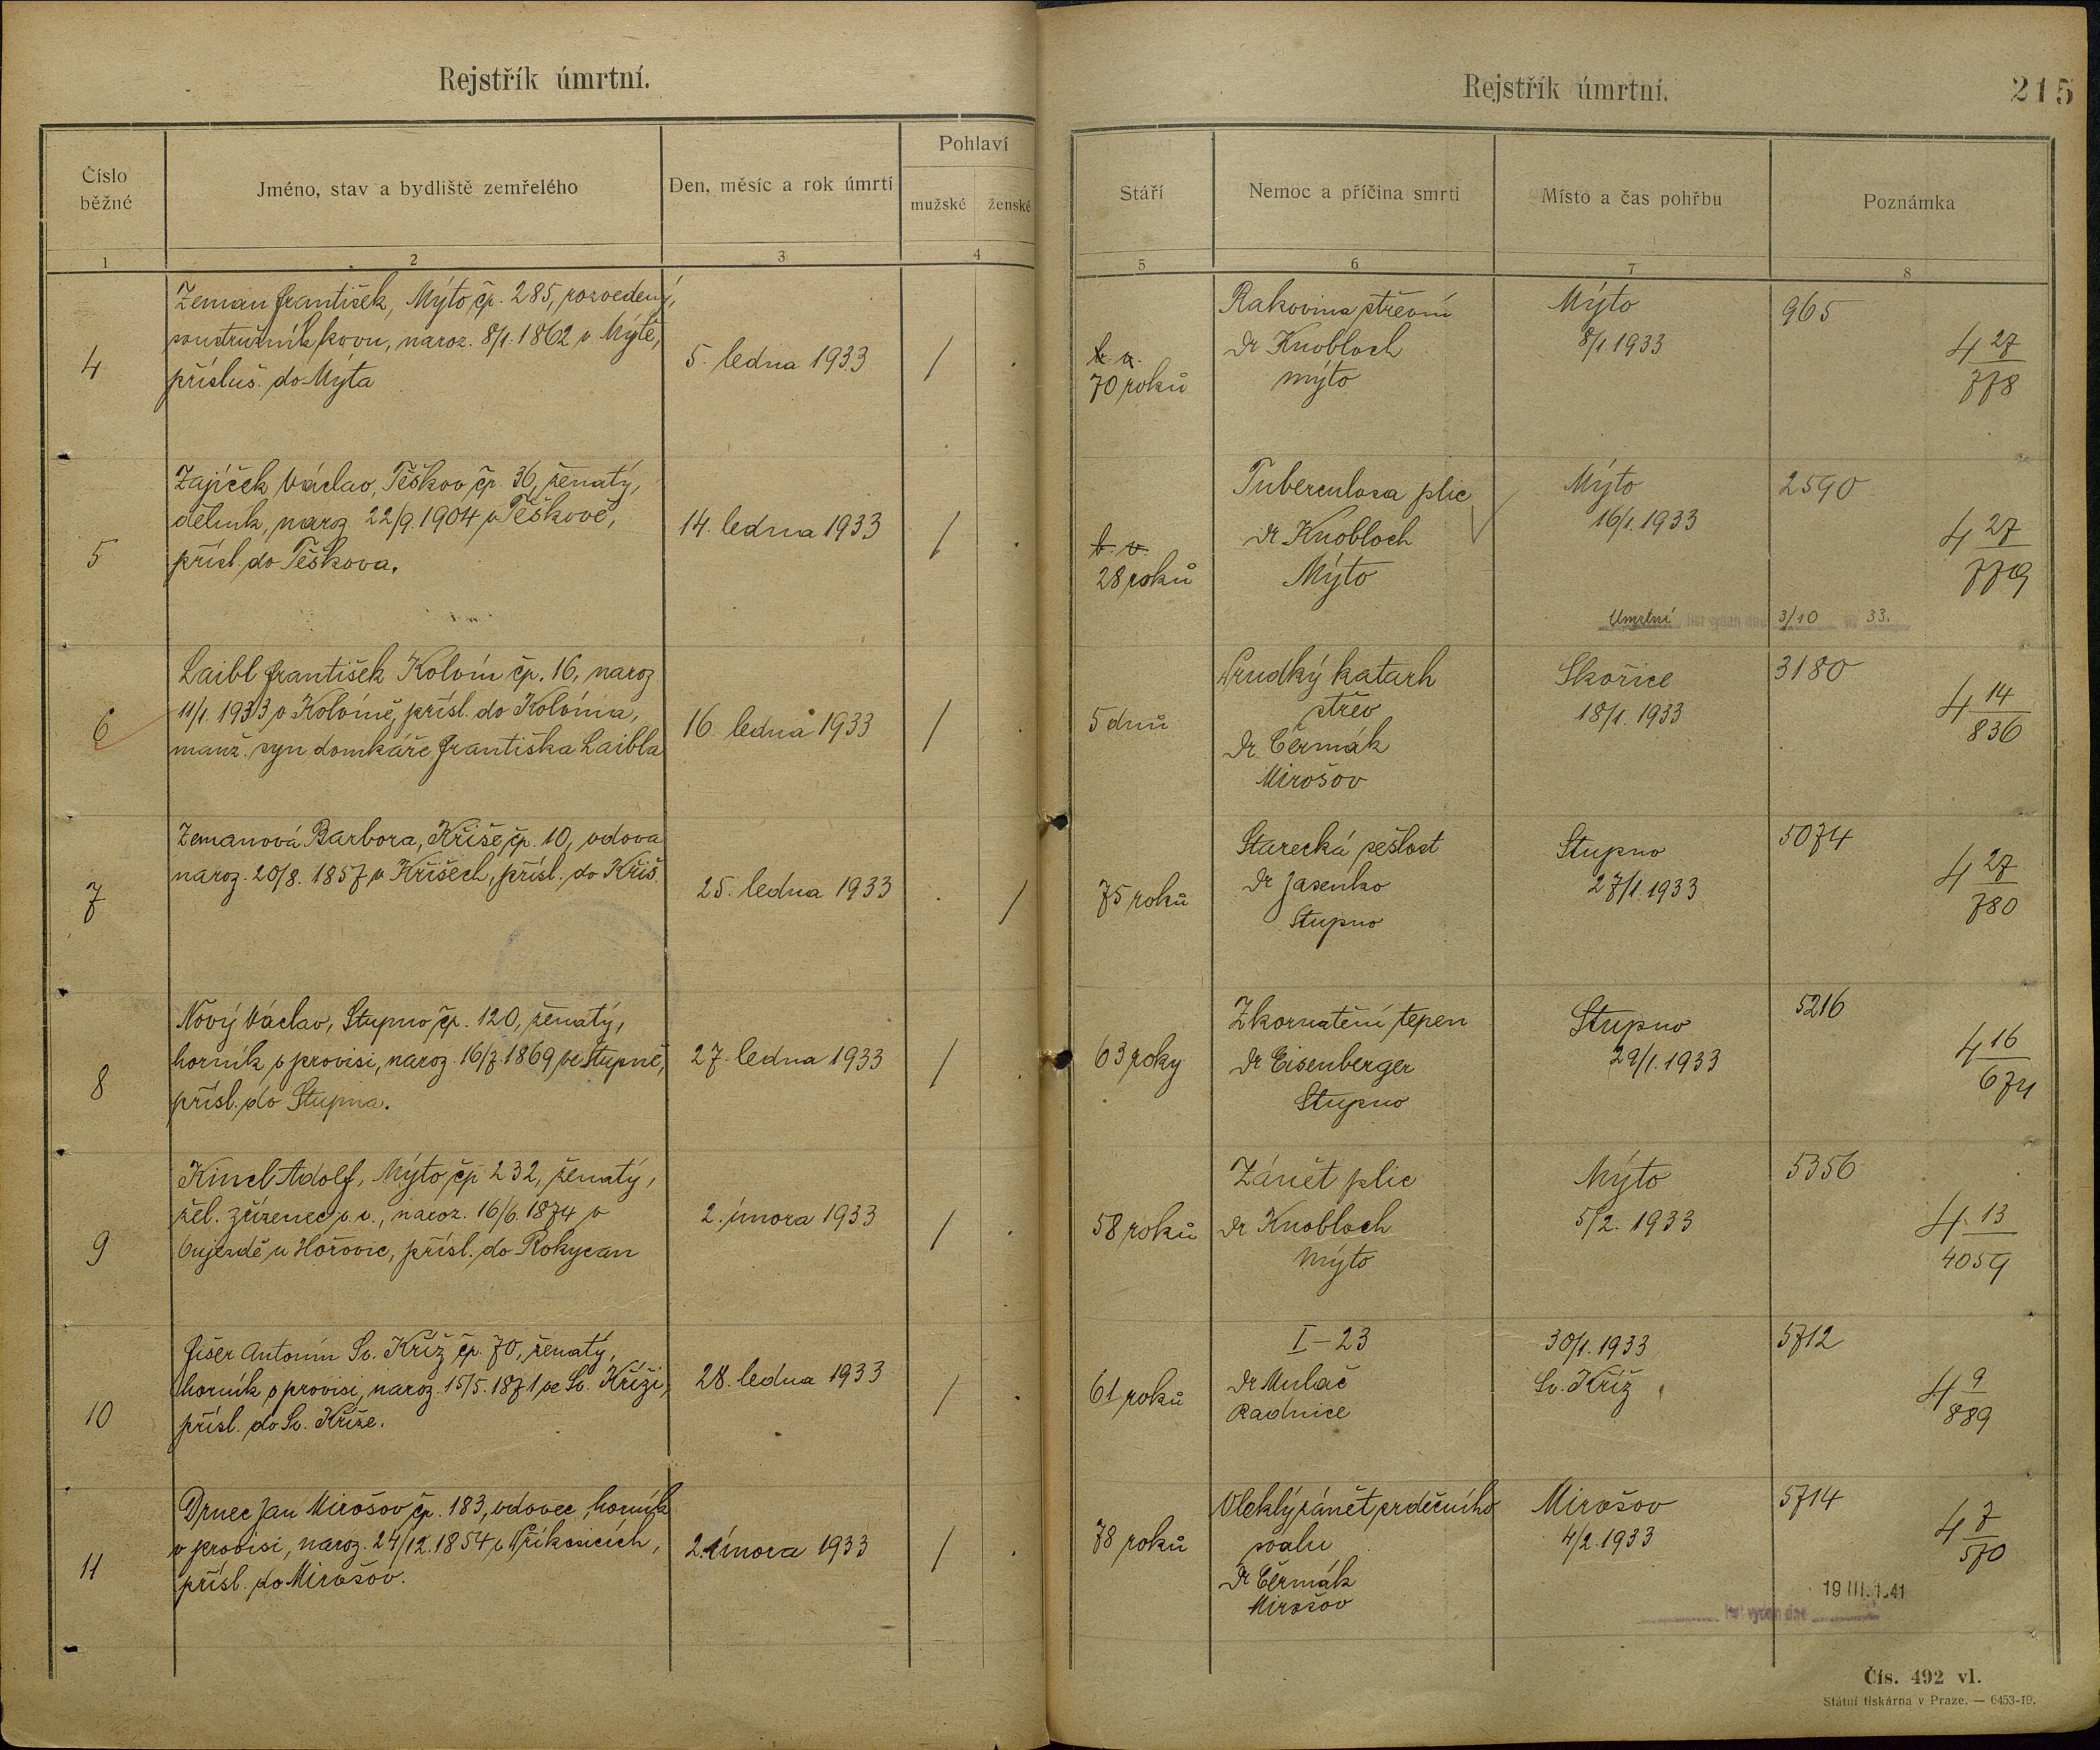 Rejstřík úmrtní.
Číslo běžné
Jméno, stav a bydliště zemřelého
Den, měsíc a rok úmrtí
Pohlaví
mužské
ženské
1
2
3
4
Zeman František, Mýto čp. 285, rozvedený,
soustružník kovu, naroz. 8/1. 1862 v Mýtě,
přísluš. do Mýta
4
5. ledna 1933
/
Zajíček Václav, Těškov čp. 36, ženatý,
dělník, naroz. 22/9. 1904 v Těškově,
přísl. do Těškova.
5
14. ledna 1933
/
Laibl František Kolvín čp. 16, naroz
11/1. 1933 v Kolvíně, přísl. do Kolvína,
manž. syn domkáře Františka Laibla
6
16. ledna 1933
/
Zemanová Barbora, Kříše čp. 10, vdova
naroz. 20/8. 1857 v Kříších, přísl. do Kříš.
7
25. ledna 1933
/
Nový Václav, Stupno čp. 120, ženatý,
horník v provisi, naroz 16/7. 1869 ve Stupně,
přísl. do Stupna.
8
27. ledna 1933
/
Kincl Adolf, Mýto čp 232, ženatý,
žel. zřízenec v. v., naroz. 16/6. 1874 v
Oujezdě u Hořovic, přísl. do Rokycan
9
2. února 1933
/
Fišer Antonín Sv. Kříž čp. 70, ženatý,
horník v provisi, naroz. 15/5. 1871 ve Sv. Kříži,
přísl. do Sv. Kříže.
10
28. ledna 1933
/
Drnec Jan Mirošov čp. 183, vdovec, horník
v provisi, naroz. 24/12. 1854 v Příkosicích,
přísl. do Mirošov.
11
2. února 1933
/
Rejstřík úmrtní.
215
Stáří
Nemoc a příčina smrti
Místo a čas pohřbu
Poznámka
5
6
7
8
70 roků
Rakovina střevní
Dr Knobloch
Mýto
Mýto
8/1. 1933
965
4 27/778
28 roků
Tuberculosa plic
Dr Knobloch
Mýto
Mýto
16/1. 1933
2590
4 27/779
Úmrtní list vydán dne 3/10 33.
5 dnů
Prudký katarh
střev
Dr Čermák
Mirošov
Skořice
18/1. 1933
3180
4 14/836
75 roků
Starecká sešlost
Dr Jasenko
Stupno
Stupno
27/1. 1933
5074
4 27/780
63 roky
Zkornatění tepen
Dr Eisenberger
Stupno
Stupno
29/1. 1933
5216
4 16/674
58 roků
Zánět plic
Dr Knobloch
Mýto
Mýto
5/2. 1933
5356
4 13/4059
61 roků
I-23
Dr Mulač
Radnice
30/1. 1933
Sv. Kříž
5712
4 9/889
78 roků
Vleklý zánět srdečního
svalu
Dr Čermák
Mirošov
Mirošov
4/2. 1933
5714
4 7/570
19 III. 1.41
list vydán dne
Čís. 492 vl.
Státní tiskárna v Praze. — 6453-19.